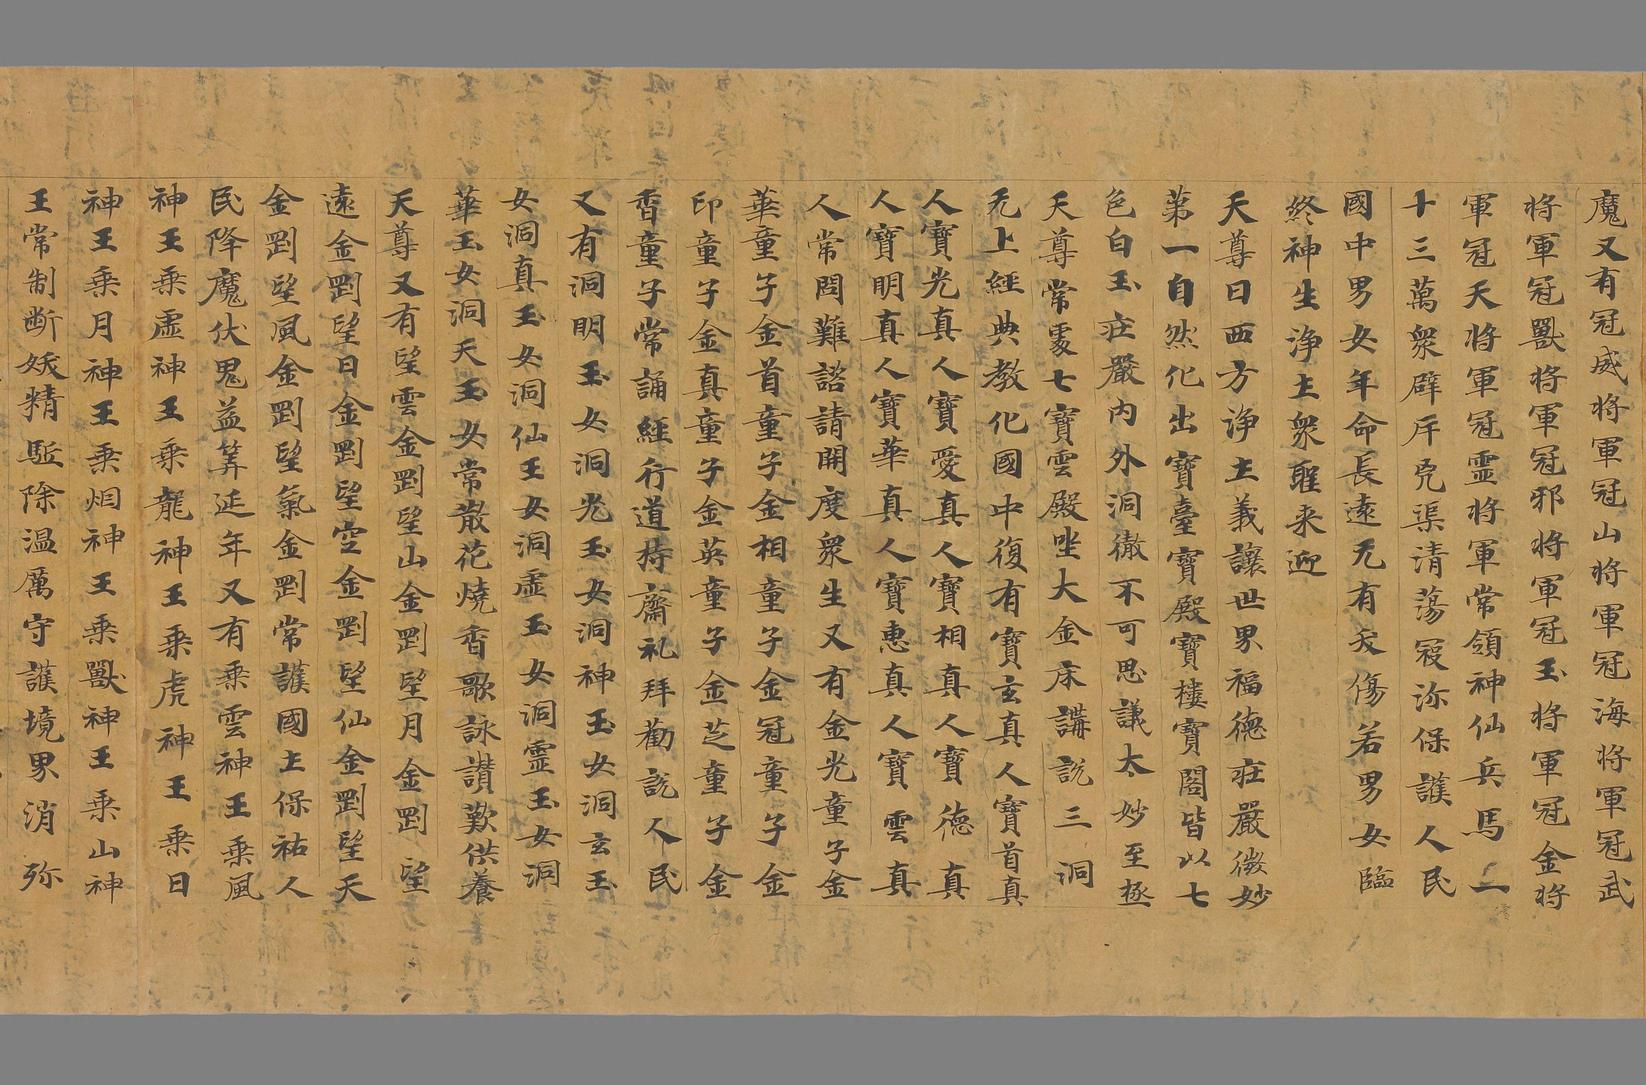 魔又有冠威將軍冠山將軍冠海將軍冠武
將軍冠獸將軍冠邪將軍冠玉將軍冠金將
軍冠天將軍冠霊將軍常領神仙兵馬二
十三萬衆辟斥凶渠清蕩寇弥保護人民
國中男女年命長遠无有夭傷若男女臨
終神生淨土衆聖来迎
天尊曰西方淨土義讓世界福德莊嚴微妙
第一自然化出寶臺寶殿寶樓寶閣皆以七
色白玉莊嚴內外洞徹不可思議太妙至極
天尊常處七寶雲殿坐大金床講說三洞
无上經典教化國中復有寶玄真人寶首真
人寶光真人寶愛真人寶相真人寶德真
人寶明真人寶華真人寶惠真人寶雲真
人常問難諮請開度衆生又有金光童子金
華童子金首童子金相童子金冠童子金
印童子金真童子金英童子金芝童子金
香童子常誦經行道持齋礼拜勸說人民
又有洞明玉女洞光玉女洞神玉女洞玄玉
女洞真玉女洞仙玉女洞虛玉女洞霊玉女洞
華玉女洞天玉女常散花燒香歌詠讚歎供養
天尊又有望雲金剛望山金剛望月金剛望
遠金剛望日金剛望空金剛望仙金剛望天
金剛望風金剛望氣金剛常護國土保祐人
民降魔伏鬼益筭延年又有乘雲神王乘風
神王乘虛神王乘龍神王乘虎神王乘日
神王乘月神王乘烟神王乘獸神王乘山神
王常制断妖精駈除温厲守護境界消弥